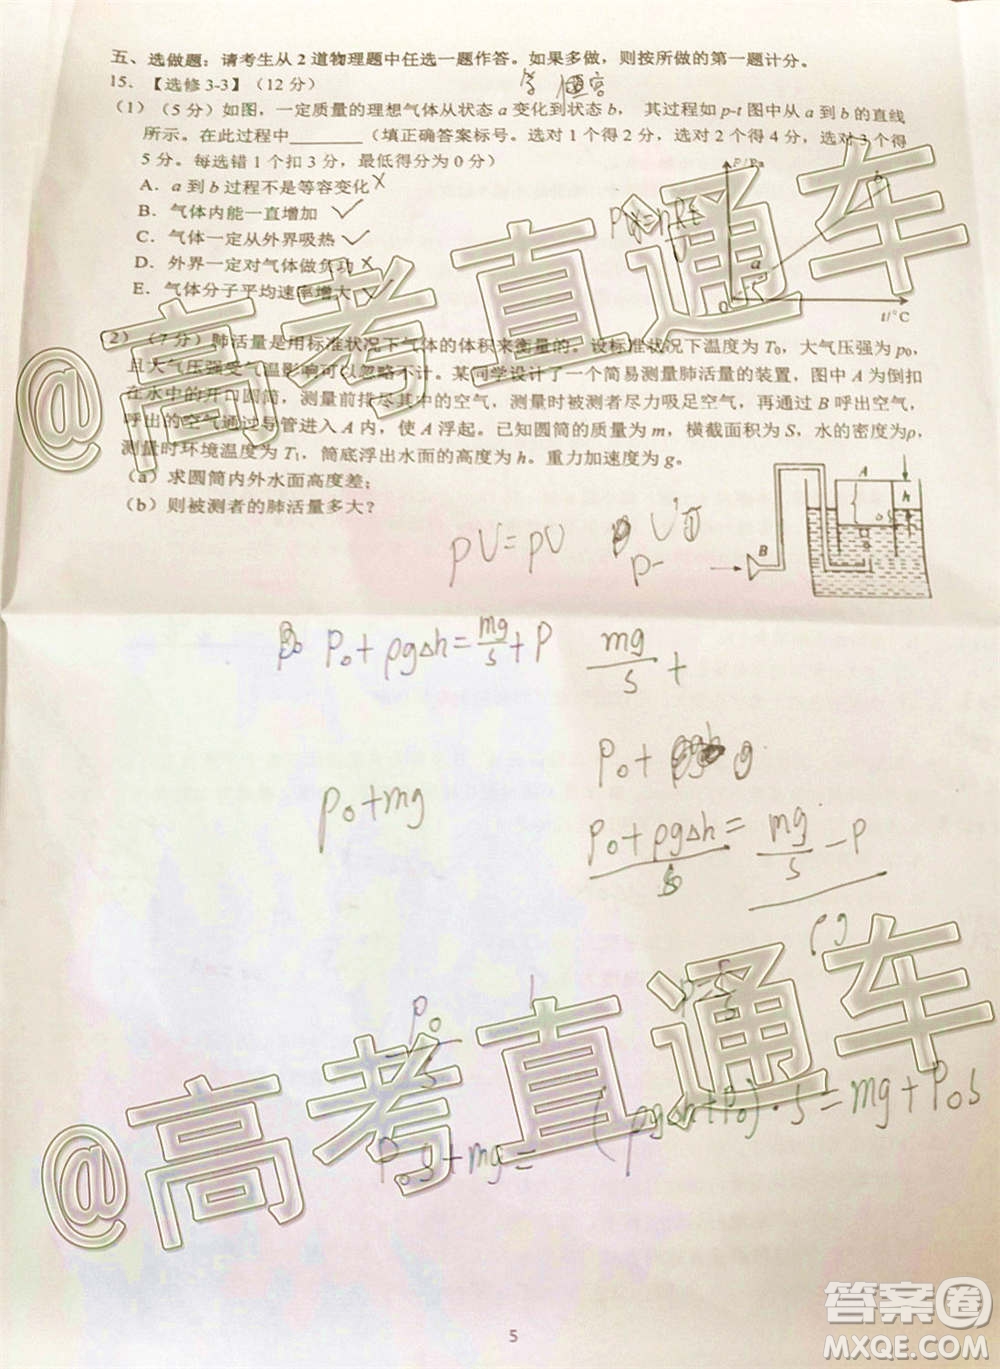 五、选做题：请考生从 2 道物理题中任选一题作答。如果多做，则按所做的第一题计分。
15.【选修 3-3】(12 分)
(1)（5 分）如图，一定质量的理想气体从状态 a 变化到状态 b， 其过程如 p-t 图中从 a 到 b 的直线
所示。在此过程中_______（填正确答案标号。选对 1 个得 2 分，选对 2 个得 4 分，选对 3 个得
5 分。每选错 1 个扣 3 分，最低得分为 0 分）
A．a 到 b 过程不是等容变化
B．气体内能一直增加
C．气体一定从外界吸热
D．外界一定对气体做负功
E．气体分子平均速率增大
p/Pa
b
a
O
t/°C
2)（7 分）肺活量是用标准状况下气体的体积来衡量的。设标准状况下温度为 T₀，大气压强为 p₀，
且大气压强受气温影响可以忽略不计。某同学设计了一个简易测量肺活量的装置，图中 A 为倒扣
在水中的开口圆筒，测量前排尽其中的空气，测量时被测者尽力吸足空气，再通过 B 呼出空气，
呼出的空气通过导管进入 A 内，使 A 浮起。已知圆筒的质量为 m，横截面积为 S，水的密度为ρ，
测量时环境温度为 T₁，筒底浮出水面的高度为 h。重力加速度为 g。
(a) 求圆筒内外水面高度差；
(b) 则被测者的肺活量多大？
A
h
B
pV=pV
P₀+ρgΔh=mg/s+P
mg/s+
P₀+mg
P₀+ρgΔh=mg/s-P
ρg
(ρgΔh+P₀)·s=mg+P₀s
P₀s+mg=
@高考直通车
@高考直通车
5
答案圈
MXQE.COM